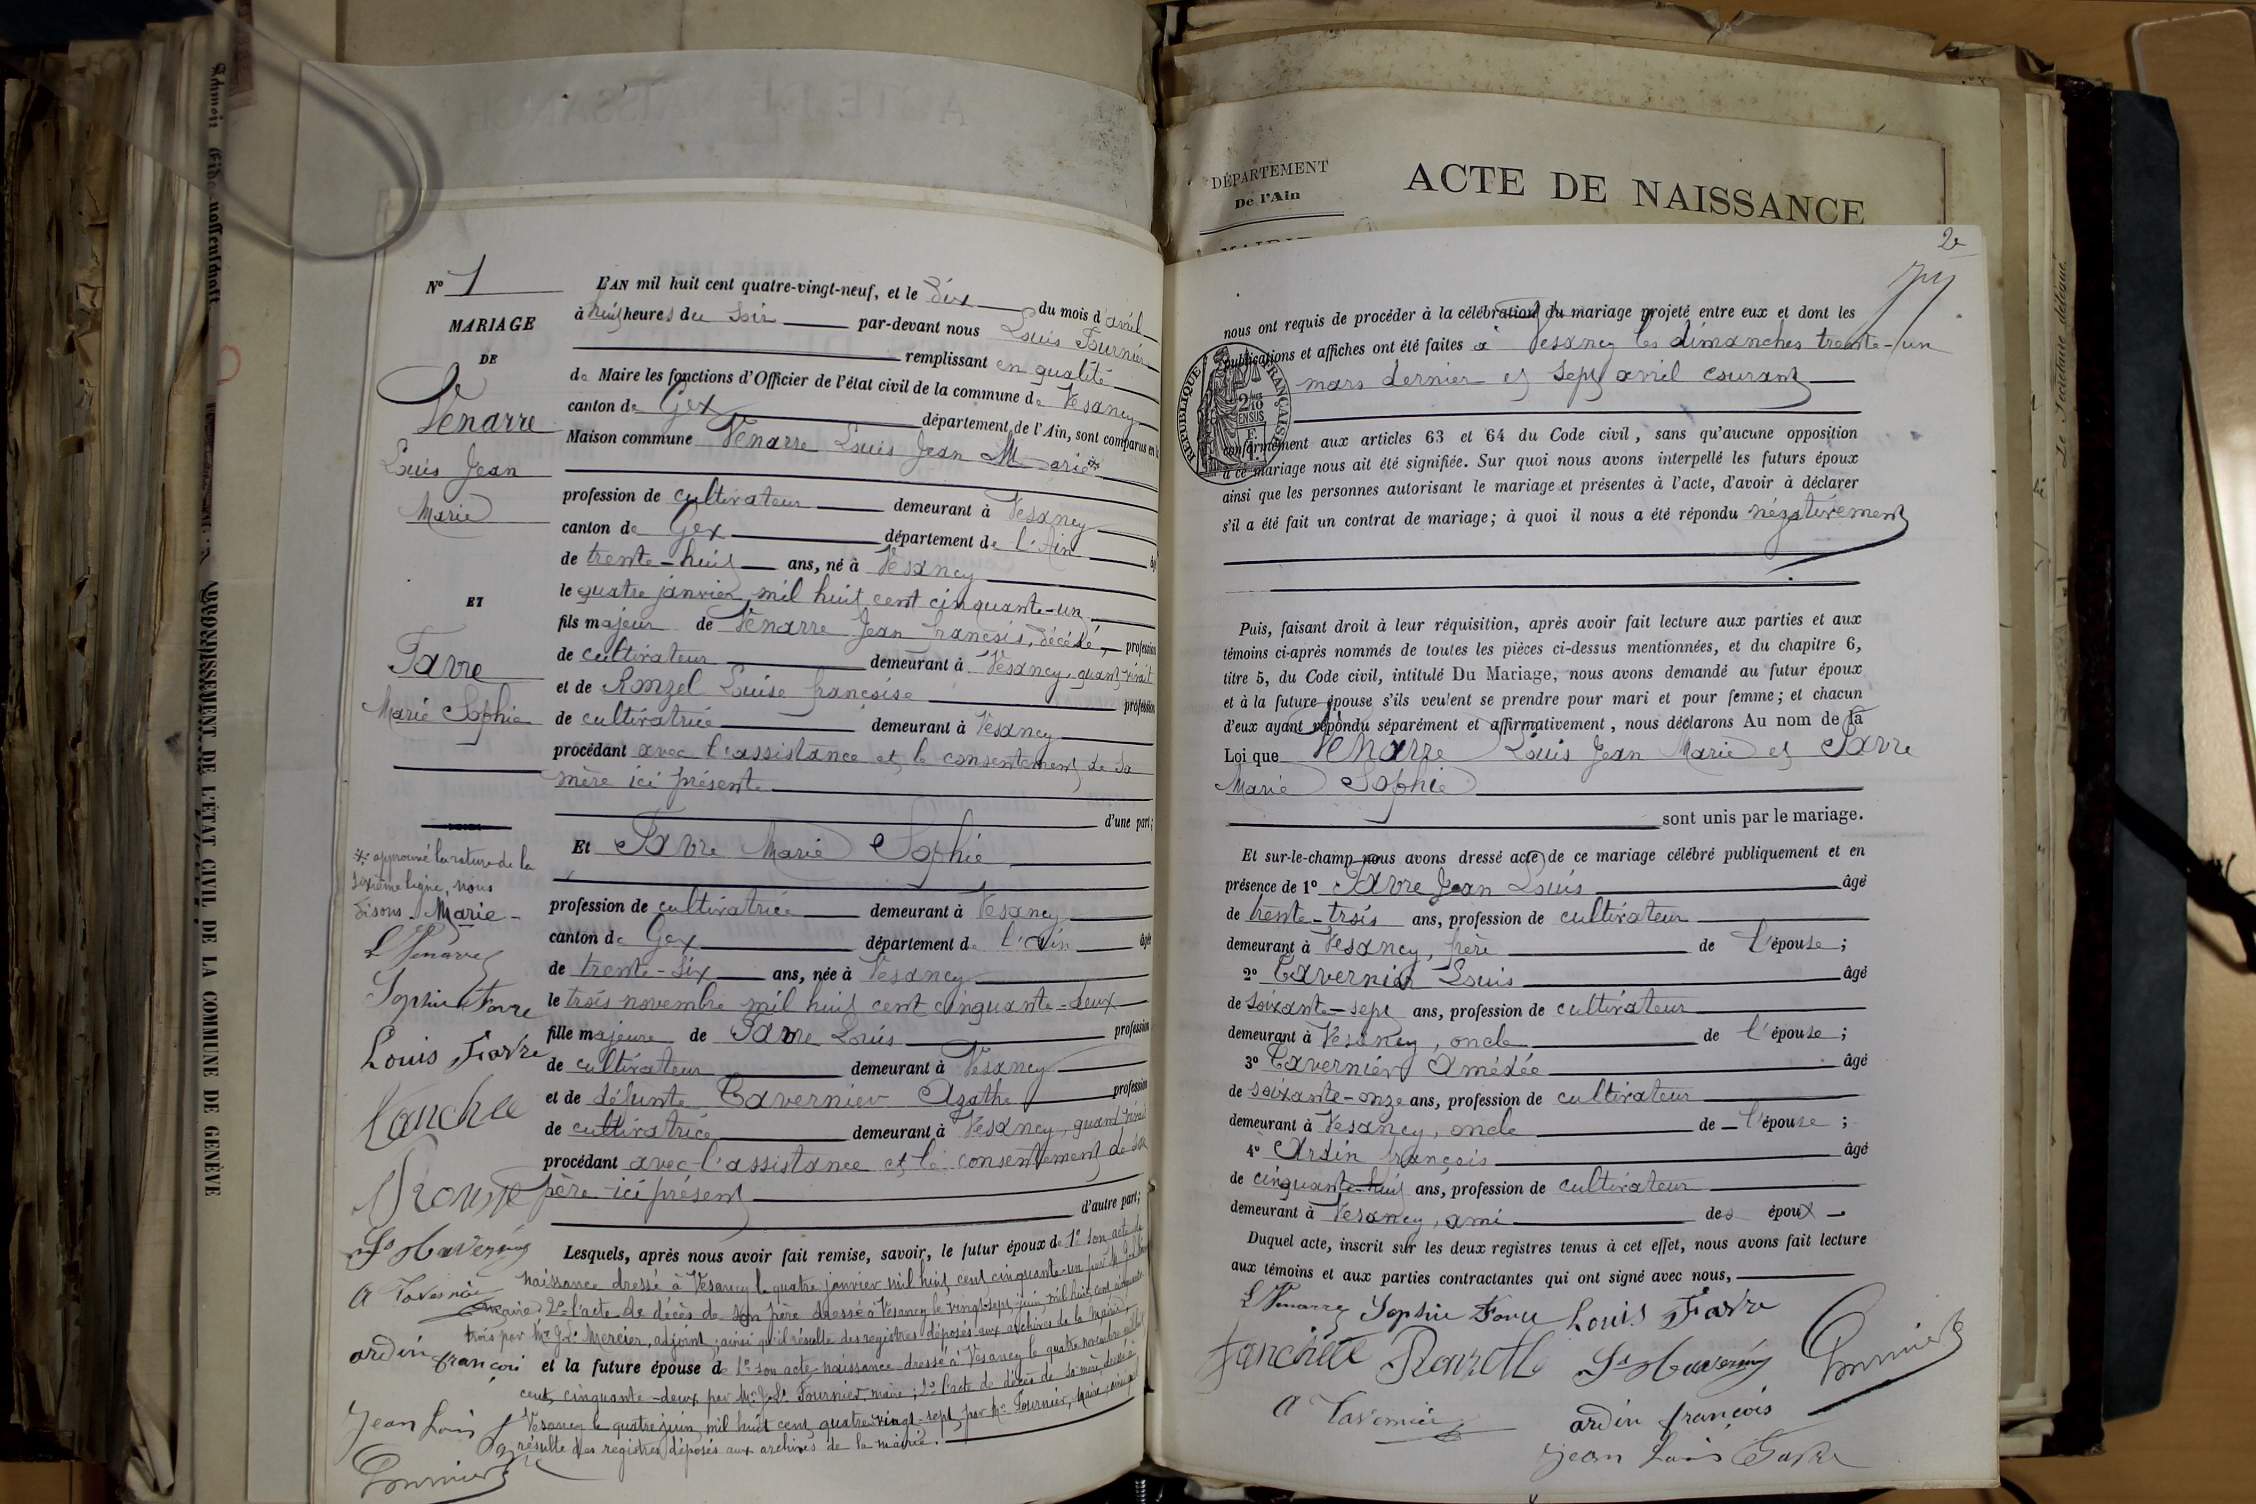 Nº 1
MARIAGE
DE
Venarre
Louis Jean
Marie
ET
Favre
Marie Sophie
* approuvé la rature de la
sixième ligne, nous
disons - Marie -
L Venarre
Sophie Favre
Louis Favre
Ls Tavernier
A Tavernier
ardin françois
Jean Louis Favre
L'AN mil huit cent quatre-vingt-neuf, et le dix du mois d'avril
à huit heures du soir par-devant nous Louis Fournier
remplissant en qualité
de Maire les fonctions d'Officier de l'état civil de la commune de Vesancy
canton de Gex département de l'Ain, sont comparus en la
Maison commune Venarre Louis Jean Marie *
profession de cultivateur demeurant à Vesancy
canton de Gex département de l'Ain âgé
de trente-huit ans, né à Vesancy
le quatre janvier mil huit cent cinquante-un
fils majeur de Venarre Jean François, décédé, profession
de cultivateur demeurant à Vesancy, quant vivait
et de Louise françoise profession
de cultivatrice demeurant à Vesancy
procédant avec l'assistance et le consentement de sa
mère ici présente
d'une part;
Et Favre Marie Sophie
profession de cultivatrice demeurant à Vesancy
canton de Gex département de l'Ain âgée
de trente-six ans, née à Vesancy
le trois novembre mil huit cent cinquante-deux
fille majeure de Favre Louis profession
de cultivateur demeurant à Vesancy
et de défunte Tavernier Agathe profession
de cultivatrice demeurant à Vesancy, quant vivait
procédant avec l'assistance et le consentement de son
père ici présent
d'autre part;
Lesquels, après nous avoir fait remise, savoir, le futur époux de 1º son acte de
naissance dressé à Vesancy le quatre janvier mil huit cent cinquante-un par
maire 2º l'acte de décès de son père dressé à Vesancy le vingt-sept juin mil huit cent
trois par Mr J. Ls Mercier, adjoint, ainsi qu'il résulte des registres déposés aux archives de la mairie,
et la future épouse de 1º son acte naissance dressé à Vesancy le quatre novembre mil huit
cent cinquante-deux par Mr J. Ls Fournier maire; 2º l'acte de décès de sa mère dressé à
Vesancy le quatre juin mil huit cent quatre vingt-sept par Mr Fournier, maire, ainsi qu'il
résulte des registres déposés aux archives de la mairie.
ARRONDISSEMENT DE L'ÉTAT CIVIL DE LA COMMUNE DE GENÈVE
DÉPARTEMENT
De l'Ain
ACTE DE NAISSANCE
Le Secrétaire délégué.
nous ont requis de procéder à la célébration du mariage projeté entre eux et dont les
publications et affiches ont été faites à Vesancy les dimanches trente-un
mars dernier et sept avril courant
RÉPUBLIQUE FRANÇAISE
conformément aux articles 63 et 64 du Code civil, sans qu'aucune opposition
à ce mariage nous ait été signifiée. Sur quoi nous avons interpellé les futurs époux
ainsi que les personnes autorisant le mariage et présentes à l'acte, d'avoir à déclarer
s'il a été fait un contrat de mariage; à quoi il nous a été répondu négativement
Puis, faisant droit à leur réquisition, après avoir fait lecture aux parties et aux
témoins ci-après nommés de toutes les pièces ci-dessus mentionnées, et du chapitre 6,
titre 5, du Code civil, intitulé Du Mariage, nous avons demandé au futur époux
et à la future épouse s'ils veulent se prendre pour mari et pour femme; et chacun
d'eux ayant répondu séparément et affirmativement, nous déclarons Au nom de la
Loi que Venarre Louis Jean Marie et Favre
Marie Sophie
sont unis par le mariage.
Et sur-le-champ nous avons dressé acte de ce mariage célébré publiquement et en
présence de 1º Favre Jean Louis âgé
de trente-trois ans, profession de cultivateur
demeurant à Vesancy, frère de l'épouse;
2º Tavernier Louis âgé
de soixante-sept ans, profession de cultivateur
demeurant à Vesancy, oncle de l'épouse;
3º Tavernier Amédée âgé
de soixante-onze ans, profession de cultivateur
demeurant à Vesancy, oncle de l'épouse;
4º Ardin françois âgé
de cinquante-huit ans, profession de cultivateur
demeurant à Vesancy, ami des époux
Duquel acte, inscrit sur les deux registres tenus à cet effet, nous avons fait lecture
aux témoins et aux parties contractantes qui ont signé avec nous,
L Venarre Sophie Favre Louis Favre
Ls Tavernier Fournier
A Tavernier ardin françois
jean Louis Favre